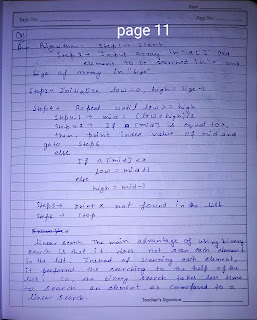 page 11
Date
Page No.
Algorithm:- Step1→ Start
Step 2→ Input array in "a[]" and
element to be searched in "x" and
size of array in "size"
Step3→ Initialize low=0, high=size-1
Step4→ Repeat until low>=high
Step4.1→ mid = (low+high)/2
Step 4.2→ If a[mid] is equal to x,
then, print index value of mid and
goto Step6
else
If a[mid]<x
low=mid+1
else
high=mid-1
Step5→ print x not found in the list
Step6→ Stop
linear search. The main advantage of using binary
search is that it does not scan each element
in the list. Instead of scanning each element,
it performs the searching to the half of the
list. So, the binary search takes less time
to search an element as compared to a
linear search.
Teacher's Signature